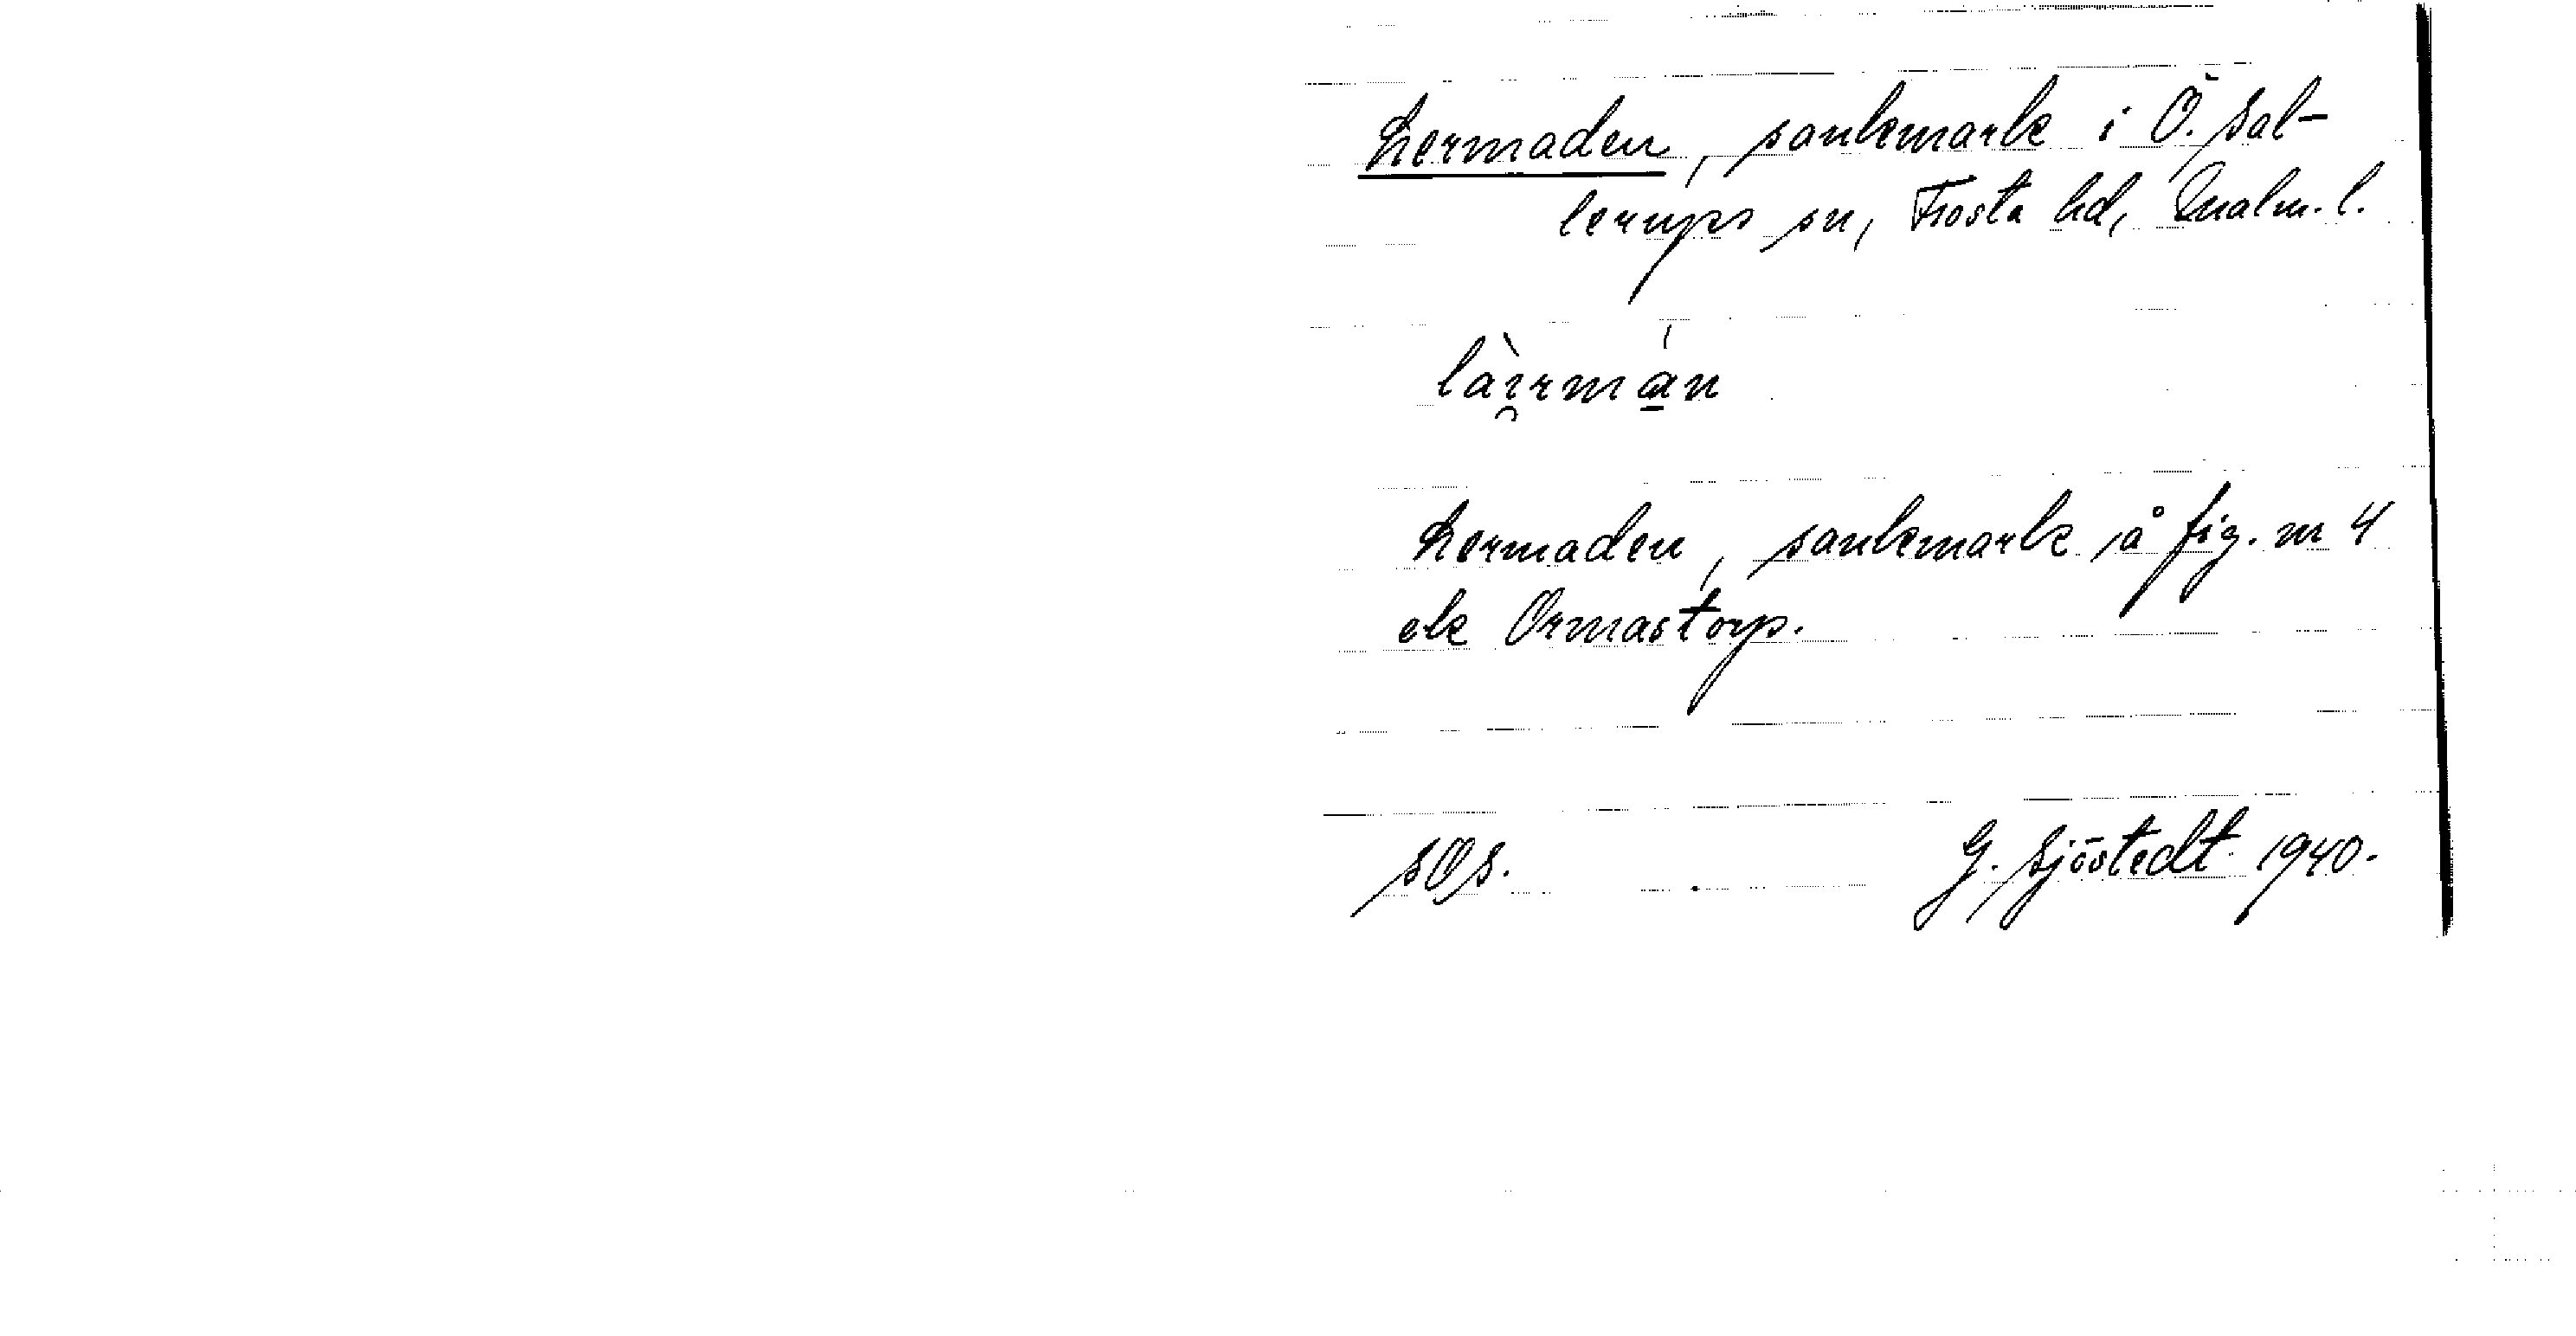 Lermaden, sankmark i Ö. Sal-
lerups sn, Frosta hd, Malm. l.
làɪ̯rmán
Lermaden, sankmark å fig. nr 4
ek Ormastorp.
SOS. G. Sjöstedt 1940.